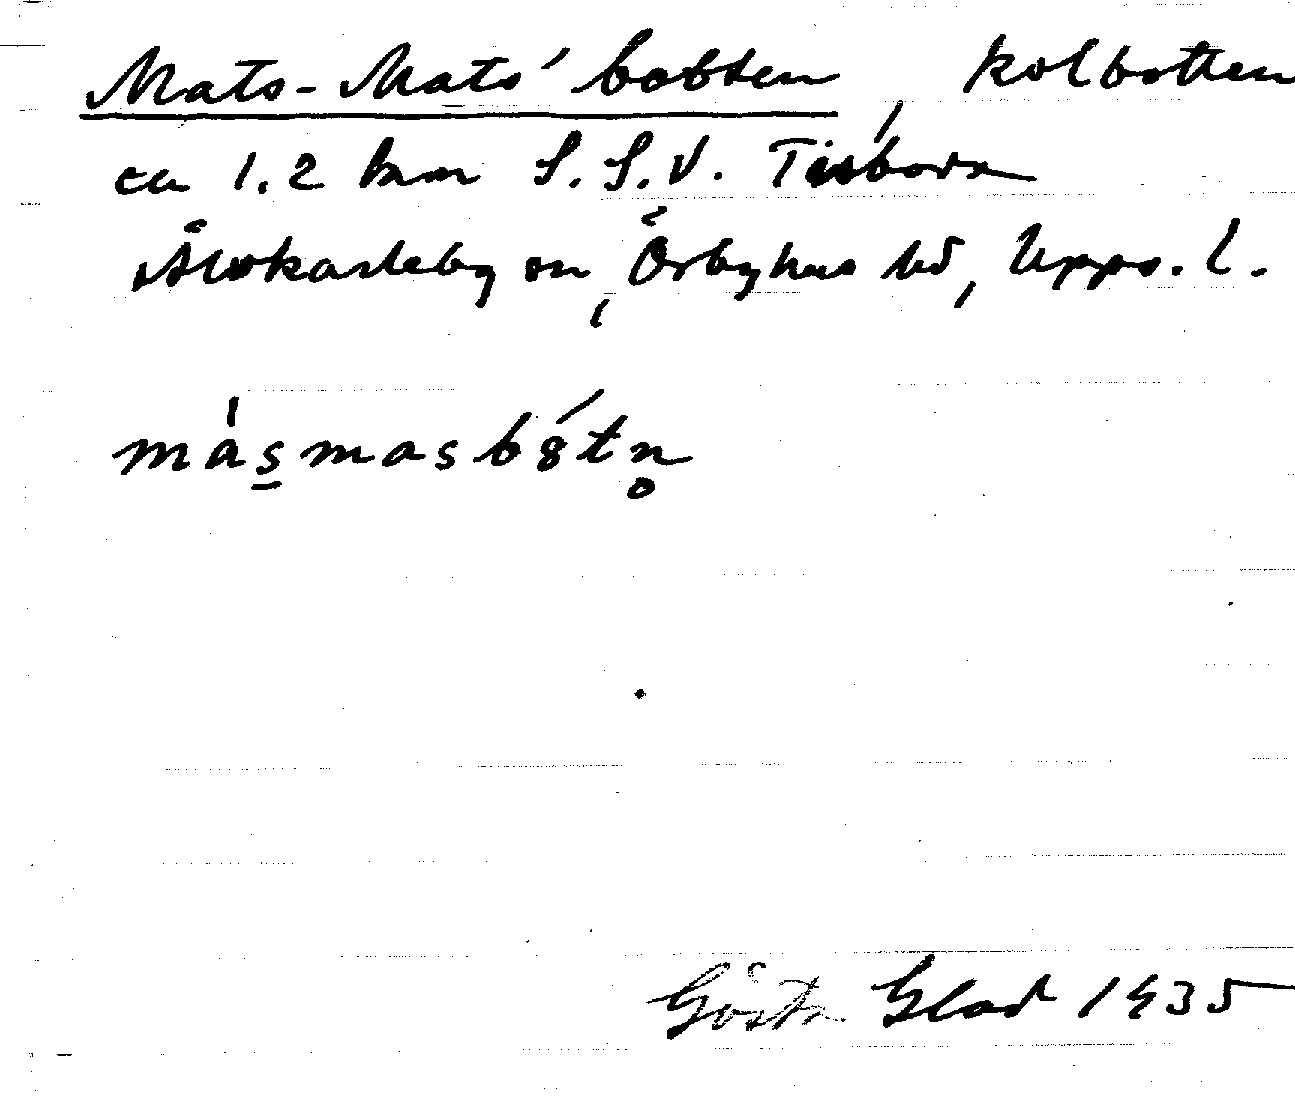 Mats-Mats' botten, kolbotten
ca 1.2 km S.S.V. Tisbora
Älvkarleby sn, Örbyhus hd, Upps. l.
másmasbótn̥
Gösta Glad 1935